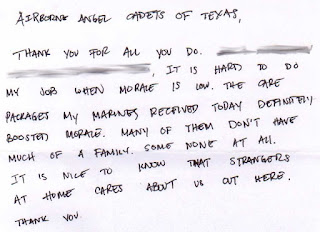 AIRBORNE ANGEL CADETS OF TEXAS,
THANK YOU FOR ALL YOU DO.
, IT IS HARD TO DO
MY JOB WHEN MORALE IS LOW. THE CARE
PACKAGES MY MARINES RECEIVED TODAY DEFINITELY
BOOSTED MORALE. MANY OF THEM DON'T HAVE
MUCH OF A FAMILY. SOME NONE AT ALL.
IT IS NICE TO KNOW THAT STRANGERS
AT HOME CARES ABOUT US OUT HERE.
THANK YOU.